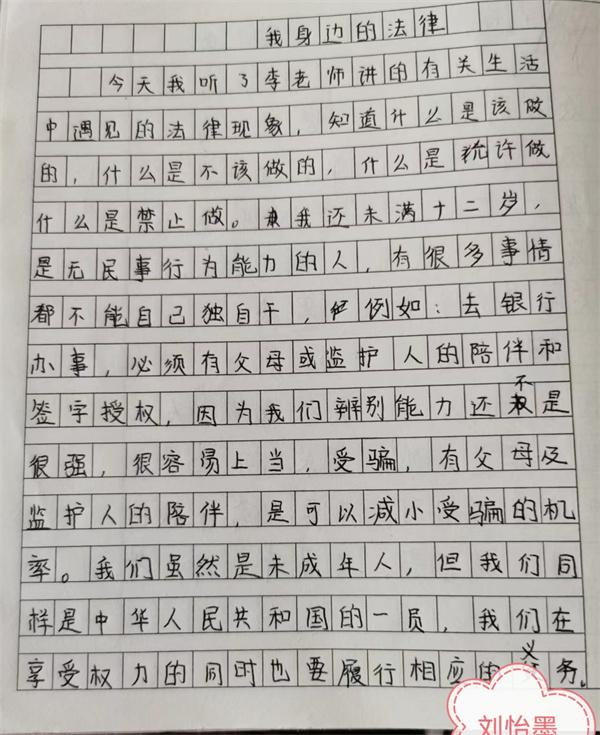 我身边的法律
今天我听了李老师讲的有关生活
中遇见的法律现象，知道什么是该做
的，什么是不该做的，什么是允许做
什么是禁止做。我还未满十二岁，
是无民事行为能力的人，有很多事情
都不能自己独自干，例如：去银行
办事，必须有父母或监护人的陪伴和
签字授权，因为我们辨别能力还不是
很强，很容易上当，受骗，有父母及
监护人的陪伴，是可以减小受骗的机
率。我们虽然是未成年人，但我们同
样是中华人民共和国的一员，我们在
享受权力的同时也要履行相应的义务。
刘怡墨